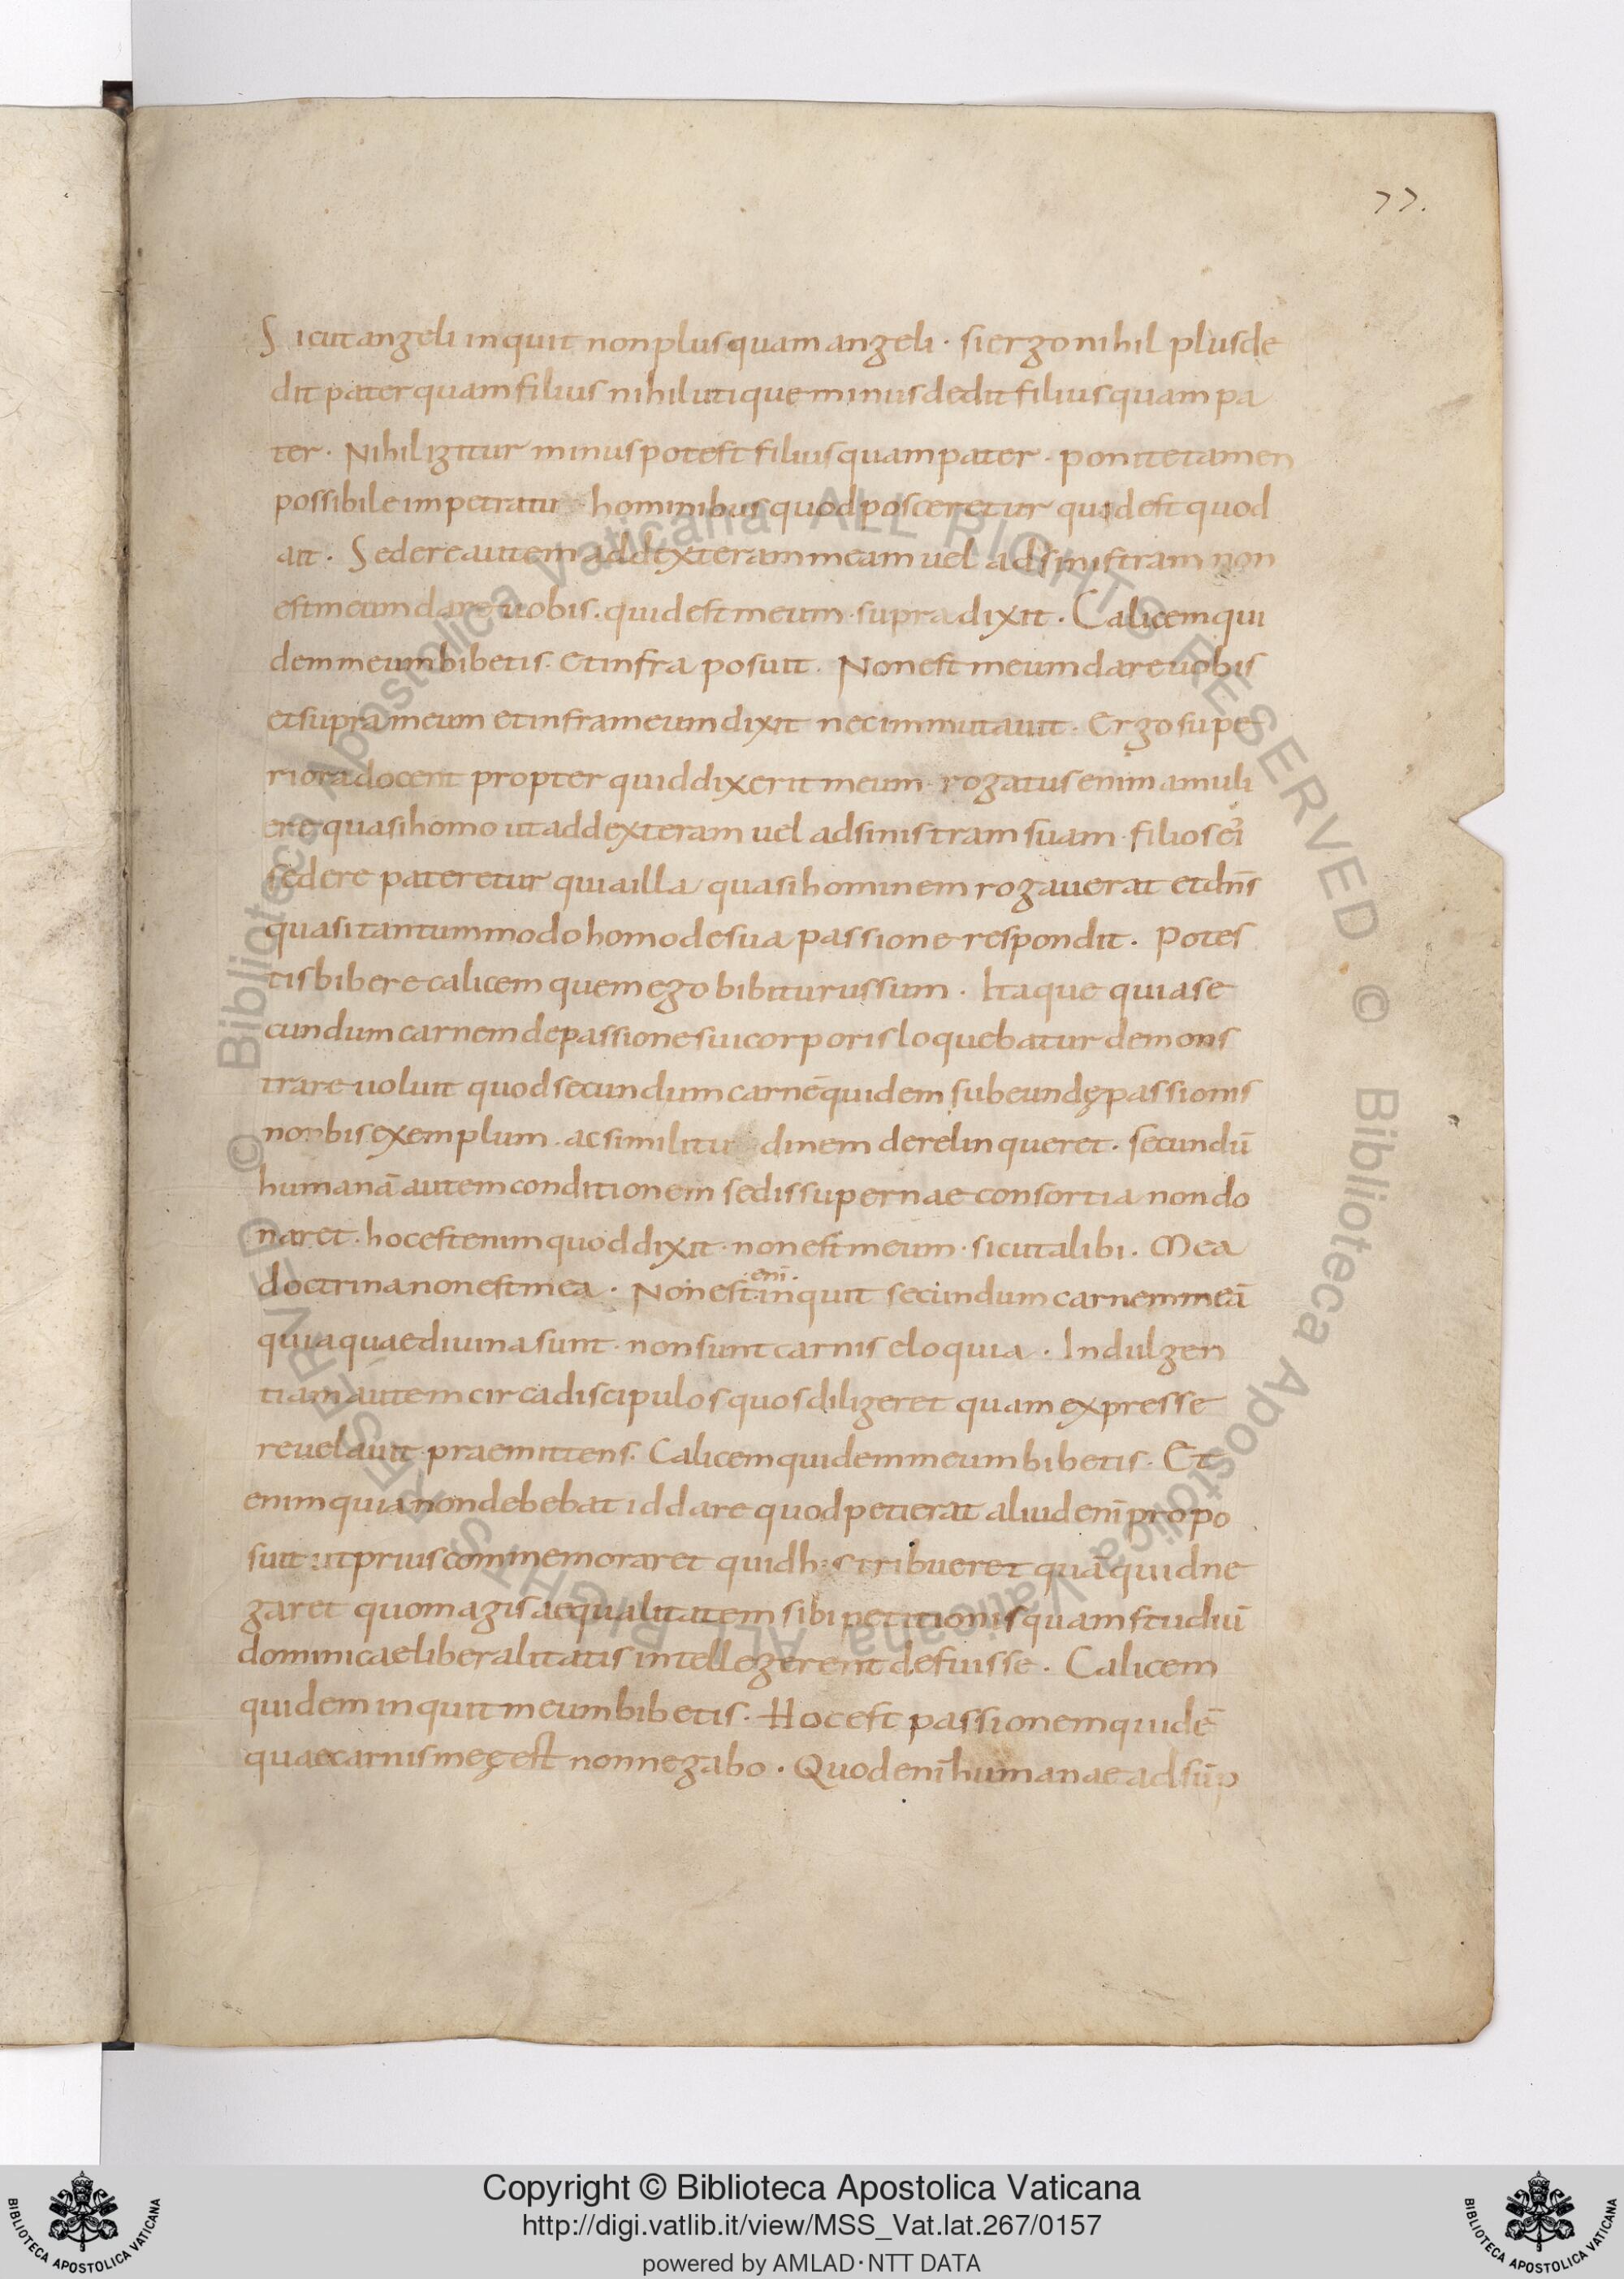 77.
Sicut angeli inquit non plus quam angeli · si ergo nihil plus de
dit pater quam filius nihil utique minus dedit filius quam pa
ter · Nihil igitur minus potest filius quam pater · ponite tamen
possibile impetratu hominibus quod posceretur quid est quod
ait · Sedere autem ad dexteram meam vel ad sinistram non
est meum dare uobis · quid est meum · supra dixit · Calicem qui
dem meum bibetis · et infra posuit · Non est meum dare uobis
et supra meum et infra meum dixit nec immutauit · Ergo supe
riora docent propter quid dixerit meum · rogatus enim a muli
ere quasi homo ut ad dexteram uel ad sinistram suam · filios ei
sedere pateretur quia illa quasi hominem rogauerat et dn̄s
quasi tantummodo homo de sua passione respondit · Potes
tis bibere calicem quem ego bibiturus sum · Itaque quia se
cundum carnem de passione sui corporis loquebatur demons
trare uoluit quod secundum carnē quidem subeundę passionis
nobis exemplum · ac similitu dinem derelinqueret · secundū
humanā autem conditionem sedis supernae consortia non do
naret · hoc est enim quod dixit · non est meum · sicut alibi · Mea
doctrina non est mea · Non est · enī · inquit secundum carnem meā
quia quae diuina sunt · non sunt carnis eloquia · Indulgen
tiam autem circa discipulos quos diligeret quam expresse
reuelauit · praemittens · Calicem quidem meum bibetis · Et
enim quia non debebat id dare quod petierat aliud enī propo
suit ut prius commemoraret quid his tribueret quā quid ne
garet quo magis aequalitatem sibi petitionis quam studiū
dominicae liberalitatis intellegerent defuisse · Calicem
quidem inquit meum bibetis · Hoc est passionem quidē
quae carnis meę est non negabo · Quod enī humanae adsūp
Copyright © Biblioteca Apostolica Vaticana
http://digi.vatlib.it/view/MSS_Vat.lat.267/0157
powered by AMLAD·NTT DATA
BIBLIOTECA APOSTOLICA VATICANA
BIBLIOTECA APOSTOLICA VATICANA
© Biblioteca Apostolica Vaticana ALL RIGHTS RESERVED
© Biblioteca Apostolica Vaticana ALL RIGHTS RESERVED